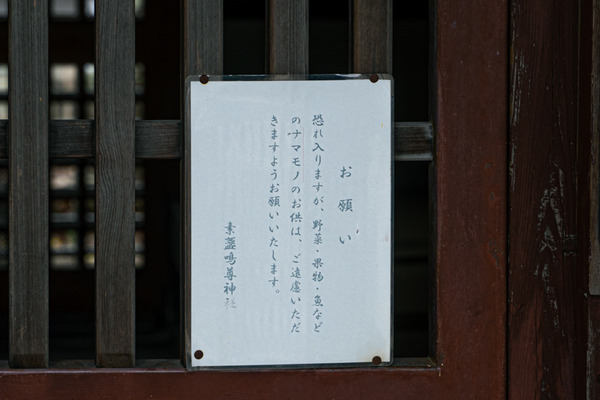 お願い
恐れ入りますが、野菜・果物・魚など
のナマモノのお供は、ご遠慮いただ
きますようお願いいたします。
素盞鳴尊神社